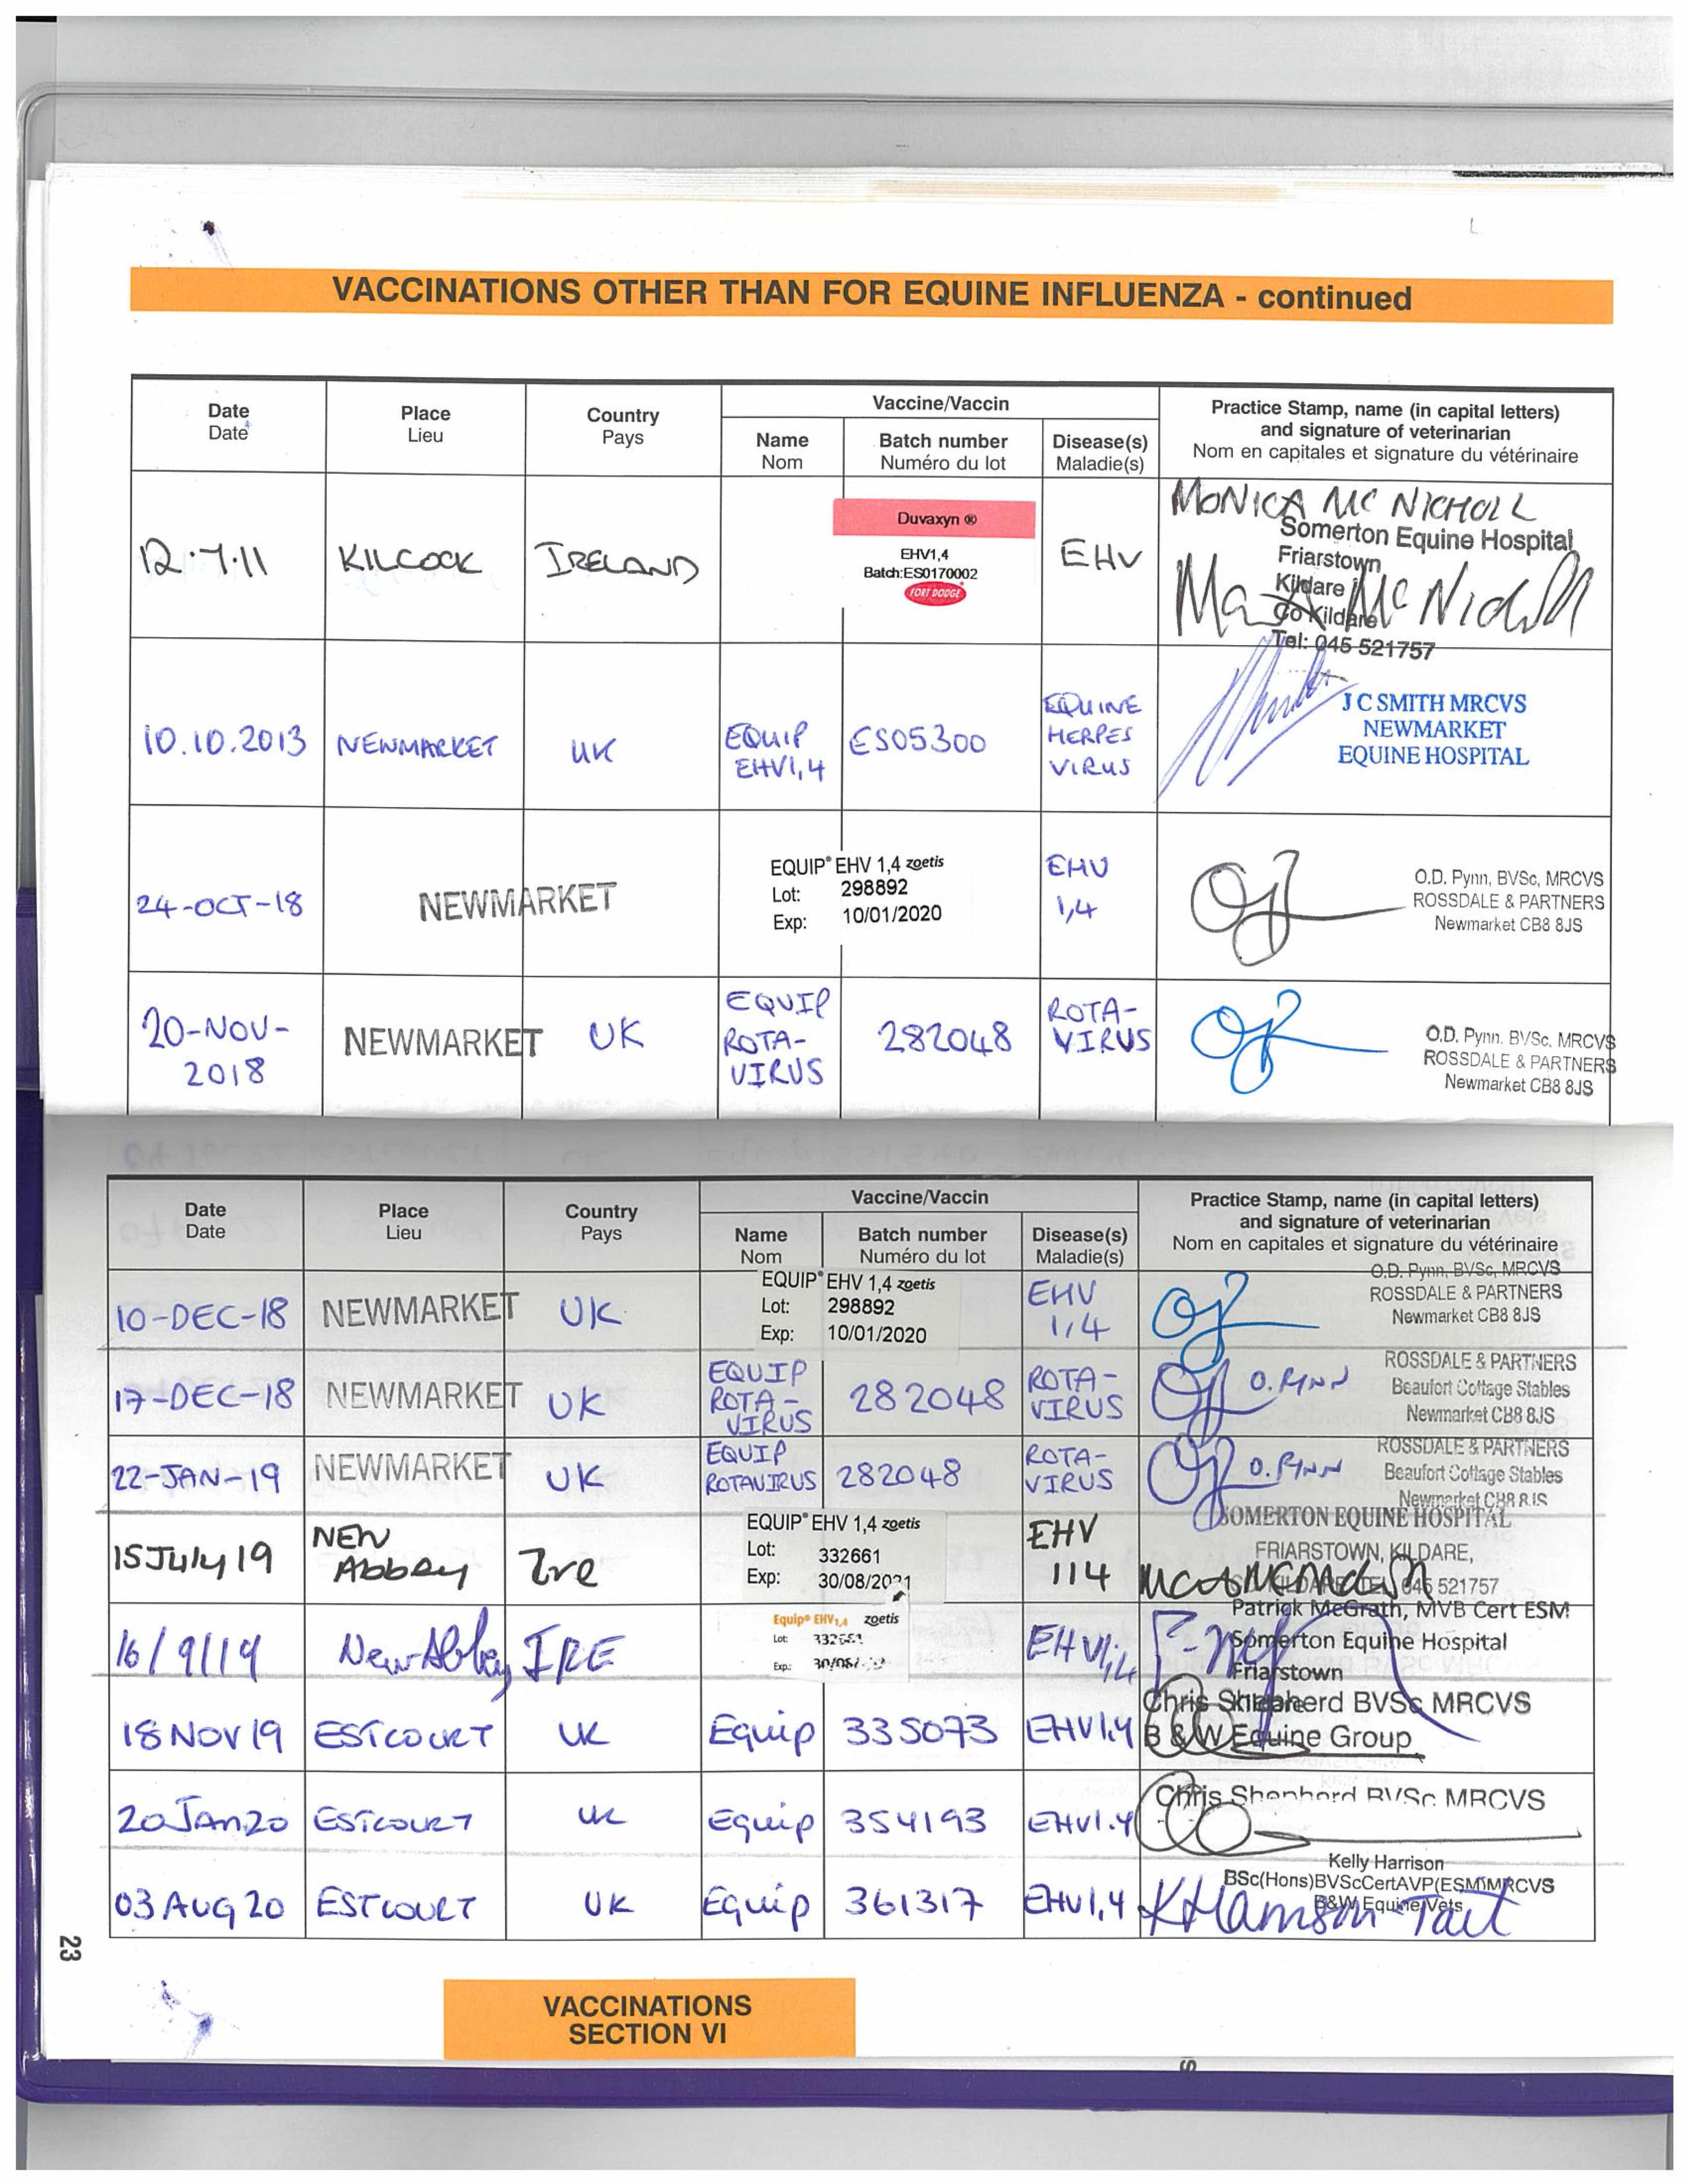 VACCINATIONS OTHER THAN FOR EQUINE INFLUENZA - continued
Date
Date
Place
Lieu
Country
Pays
Vaccine/Vaccin
Name
Nom
Batch number
Numéro du lot
Disease(s)
Maladie(s)
Practice Stamp, name (in capital letters)
and signature of veterinarian
Nom en capitales et signature du vétérinaire
12.7.11
KILCOCK
IRELAND
Duvaxyn ®
EHV1,4
Batch:ES0170002
FORT DODGE
EHV
MONICA MC NICHOLL
Somerton Equine Hospital
Friarstown
Kildare
Co Kildare
Tel: 045 521757
10.10.2013
NEWMARKET
UK
EQUIP
EHV1,4
ES05300
EQUINE
HERPES
VIRUS
J C SMITH MRCVS
NEWMARKET
EQUINE HOSPITAL
24-OCT-18
NEWMARKET
EQUIP® EHV 1,4 zoetis
Lot: 298892
Exp: 10/01/2020
EHV
1,4
O.D. Pynn, BVSc, MRCVS
ROSSDALE & PARTNERS
Newmarket CB8 8JS
20-NOV-
2018
NEWMARKET
UK
EQUIP
ROTA-
VIRUS
282048
ROTA-
VIRUS
O.D. Pynn. BVSc. MRCVS
ROSSDALE & PARTNERS
Newmarket CB8 8JS
Date
Date
Place
Lieu
Country
Pays
Vaccine/Vaccin
Name
Nom
Batch number
Numéro du lot
Disease(s)
Maladie(s)
Practice Stamp, name (in capital letters)
and signature of veterinarian
Nom en capitales et signature du vétérinaire
10-DEC-18
NEWMARKET
UK
EQUIP® EHV 1,4 zoetis
Lot: 298892
Exp: 10/01/2020
EHV
1,4
O.D. Pynn, BVSc, MRCVS
ROSSDALE & PARTNERS
Newmarket CB8 8JS
17-DEC-18
NEWMARKET
UK
EQUIP
ROTA-
VIRUS
282048
ROTA-
VIRUS
O. PYNN
ROSSDALE & PARTNERS
Beaufort Cottage Stables
Newmarket CB8 8JS
22-JAN-19
NEWMARKET
UK
EQUIP
ROTAVIRUS
282048
ROTA-
VIRUS
O. PYNN
ROSSDALE & PARTNERS
Beaufort Cottage Stables
Newmarket CB8 8JS
15 July 19
NEW
Abbey
Ire
EQUIP® EHV 1,4 zoetis
Lot: 332661
Exp: 30/08/2021
EHV
114
SOMERTON EQUINE HOSPITAL
FRIARSTOWN, KILDARE,
TEL 045 521757
16/9/19
New Abbey
IRE
Equip® EHV1,4 zoetis
Lot: 332661
Exp.: 30/08/
EHV1,4
Patrick McGrath, MVB Cert ESM
Somerton Equine Hospital
Friarstown
Kildare
18 NOV 19
ESTCOURT
UK
Equip
335073
EHV1,4
Chris Shepherd BVSc MRCVS
B & W Equine Group
20 JAN 20
ESTCOURT
UK
Equip
354193
EHV1.4
Chris Shepherd BVSc MRCVS
03 AUG 20
ESTCOURT
UK
Equip
361317
EHV1,4
Kelly Harrison
BSc(Hons)BVScCertAVP(ESM)MRCVS
B&W Equine Vets
KHarrison-Tait
23
VACCINATIONS
SECTION VI